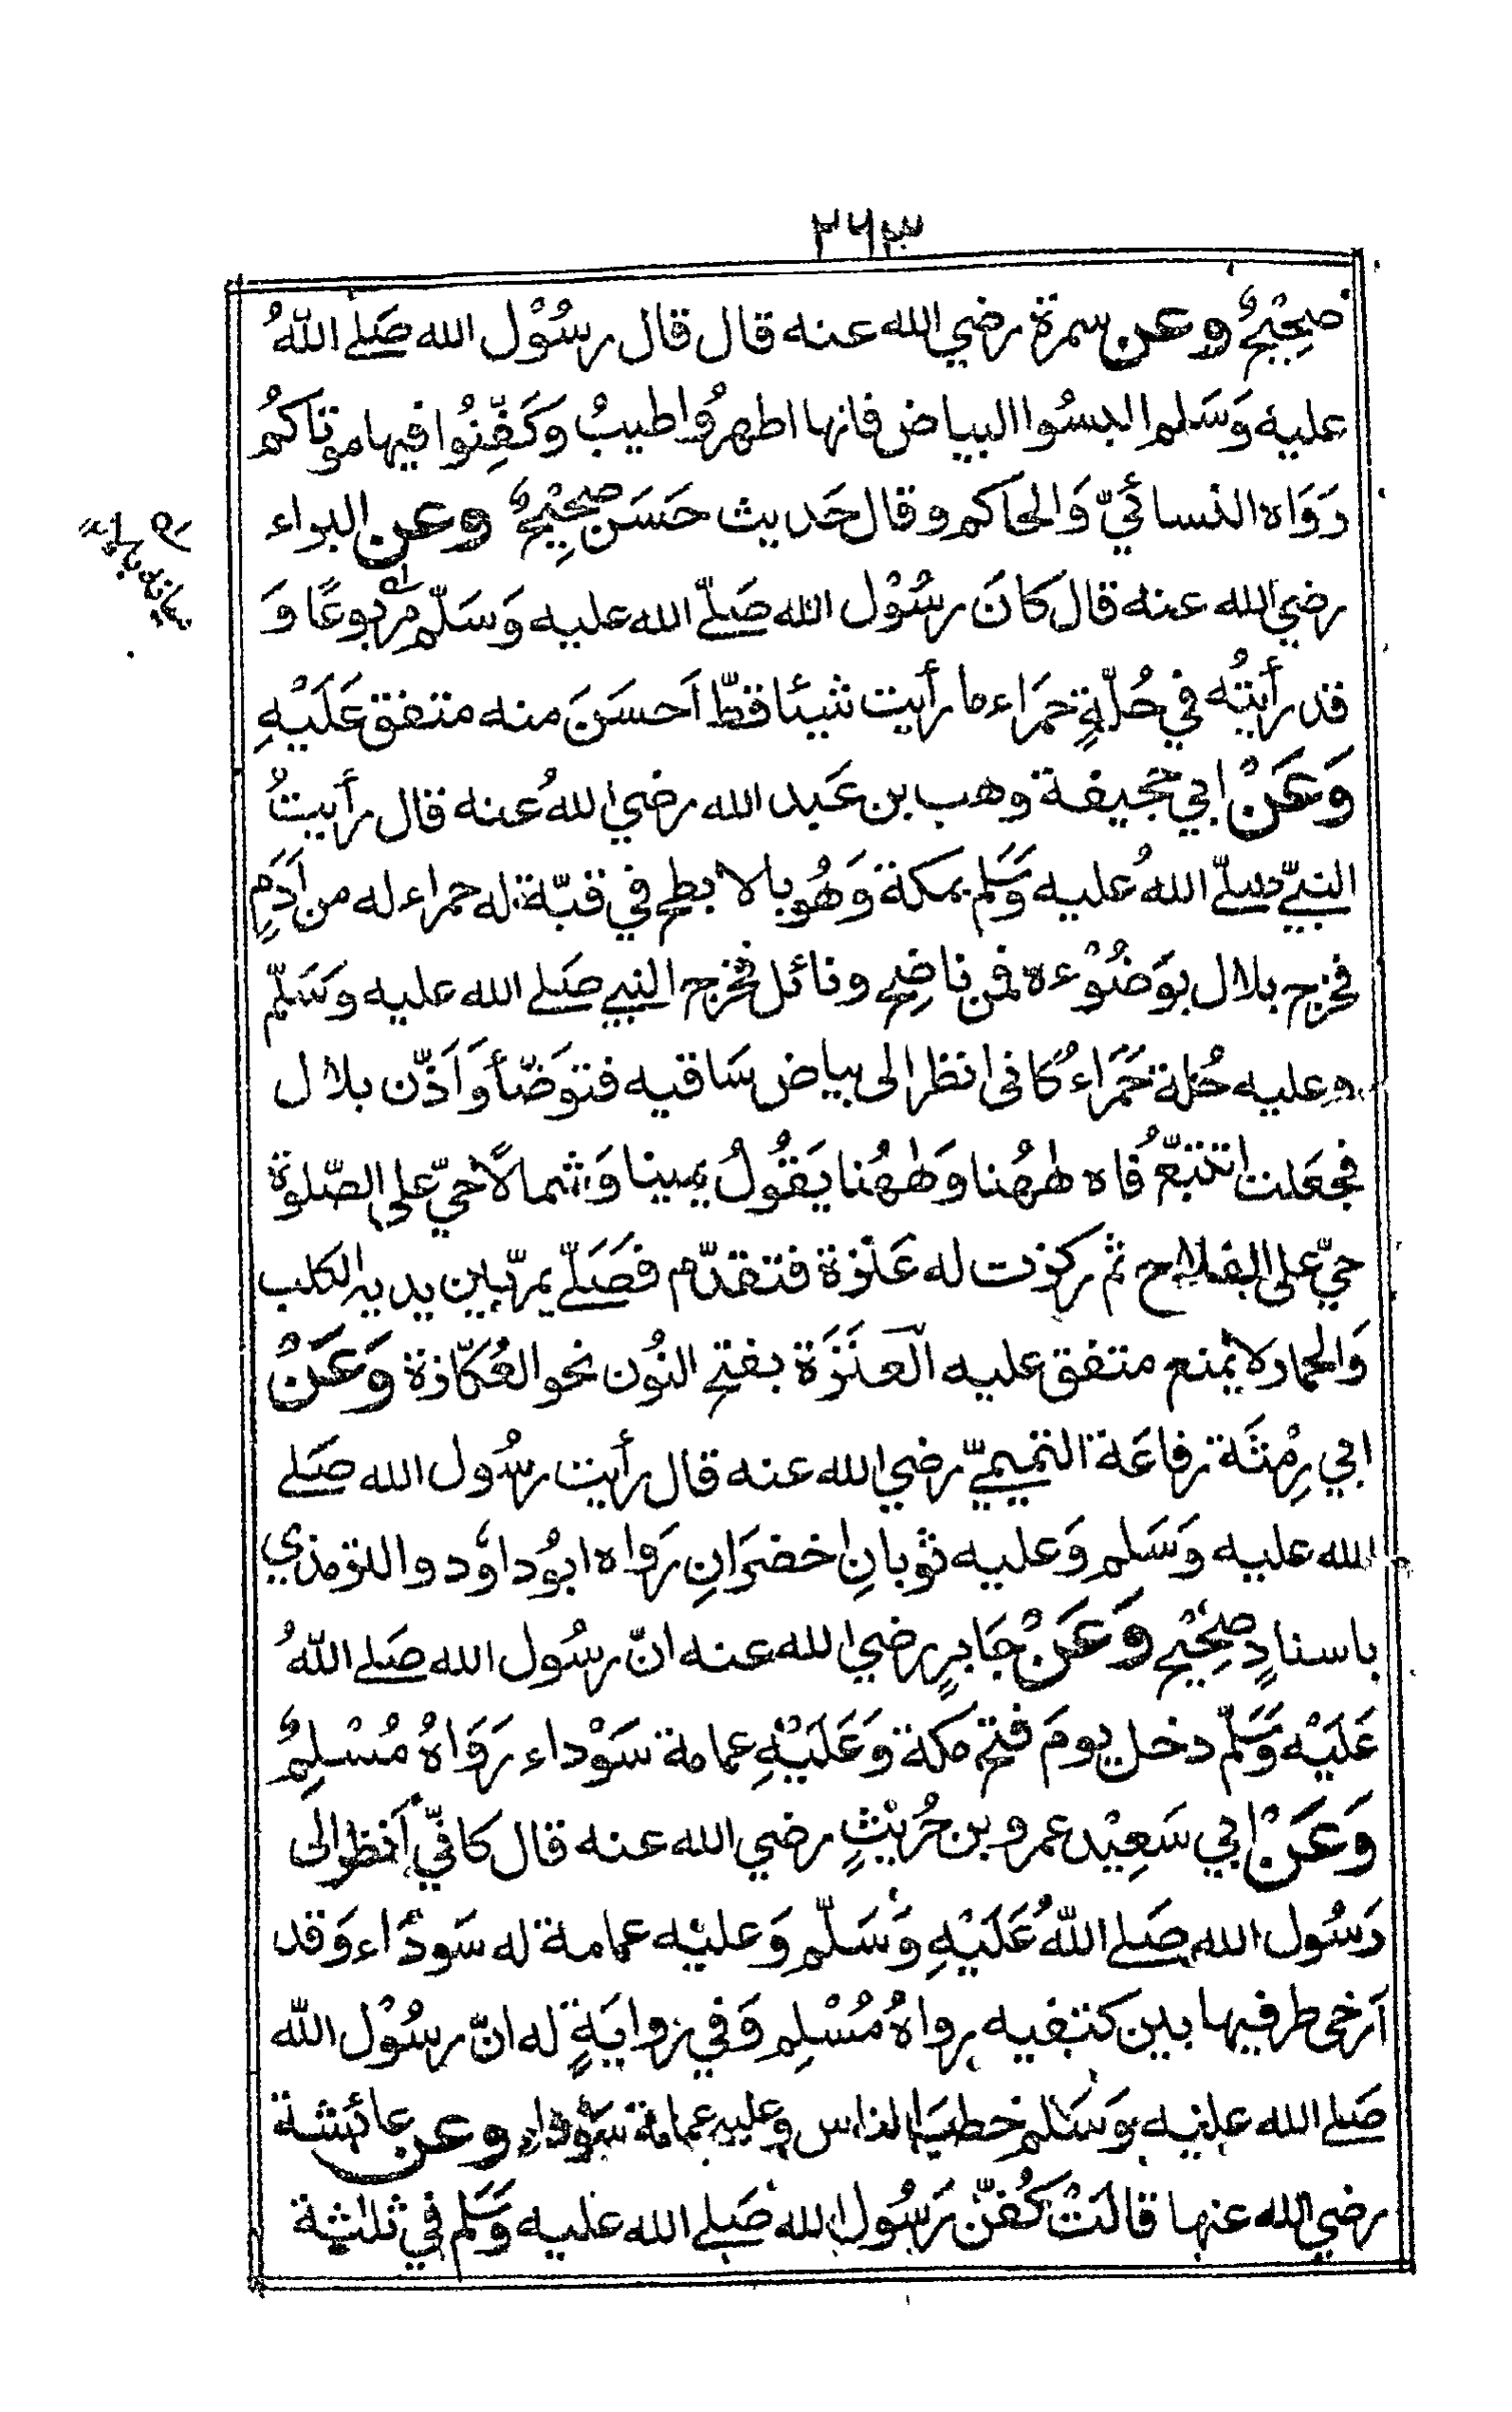 ٢٦٣
صَحِيْحٌ وعن سمرة رضي الله عنه قال قال رسُوْل الله صَلے اللّٰهُ
عليه وَسَلم البسُوا البياض فانها اطهرُ واطيبُ وَكَفِّنُوا فيها موتاكمُ
رَوَاه النسائيّ وَالحاكم وقال حَديث حَسَن صَحِيْحٌ وعن البراء
رضي الله عنه قال كَانَ رسُوْل الله صَلّے الله عليه وَسَلّم مربوعًا وَ
قد رأيتُه في حُلّةٍ حمَراء ما رأيت شيئا قطّ اَحسَنَ منه متفق عَلَيْهِ
وَعَنْ ابي جحيفة وهب بن عَبد الله رضي اللهُ عنه قال رأيتُ
النبيّ صلّے اللهُ عليه وَسَلم بمكة وَهُو بالابطح في قبّة له حمراء له من اَدَمٍ
فخرج بلال بوَضُوْءه فمن ناضِح ونائل فخرج النبي صَلے الله عليه وسَلّم
وعليه حُلة حَمَراءُ كانى انظر الى بياض سَاقيه فتوَضّأ وَاَذّن بلال
فجعَلت اتتبّعُ فاه هٰهُنا وَهٰهُنا يَقُولُ يمينا وَشمالًا حيّ على الصّلوة
حيّ على الفلاح ثم ركزت له عَنَزة فتقدّم فصَلّے يمرّ بين يديه الكلب
وَالحمار لا يمنع متفق عليه اَلعَنَزَة بفتح النُون نحو العُكّازة وَعَنْ
ابي رِمْثَة رفاعَة التميميّ رضي الله عنه قال رأيت رسُول الله صَلے
الله عليه وَسَلم وَعليه ثوبانِ اخضرَانِ رَواه ابُو داوٗد والترمذي
باسنادٍ صحِيْح وَعَنْ جَابرٍ رضي الله عنه انّ رسُول الله صَلے اللّٰهُ
عَلَيْه وَسَلّم دخل يومَ فتح مكة وَعَلَيْهِ عمامة سَوْداء رَوَاهُ مُسْلِمٌ
وَعَنْ ابي سَعِيْد عمرو بن حُرَيْثٍ رضي الله عنه قال كانّي اَنظر الى
رَسُول الله صَلے اللّٰهُ عَلَيْهِ وَسَلّم وَعليْه عمامة له سَودَاء وَقد
اَرخى طرفيها بين كتفيه رواهُ مُسْلِم وَفي روايَةٍ له انّ رسُوْل اللّٰه
صَلے الله عليه وَسَلم خطبَ الناس وعليه عمامة سَوْداء وعن عائشة
رضي الله عنها قالَتْ كُفنّ رَسُول الله صَلے الله عليه وَسَلم في ثلثة